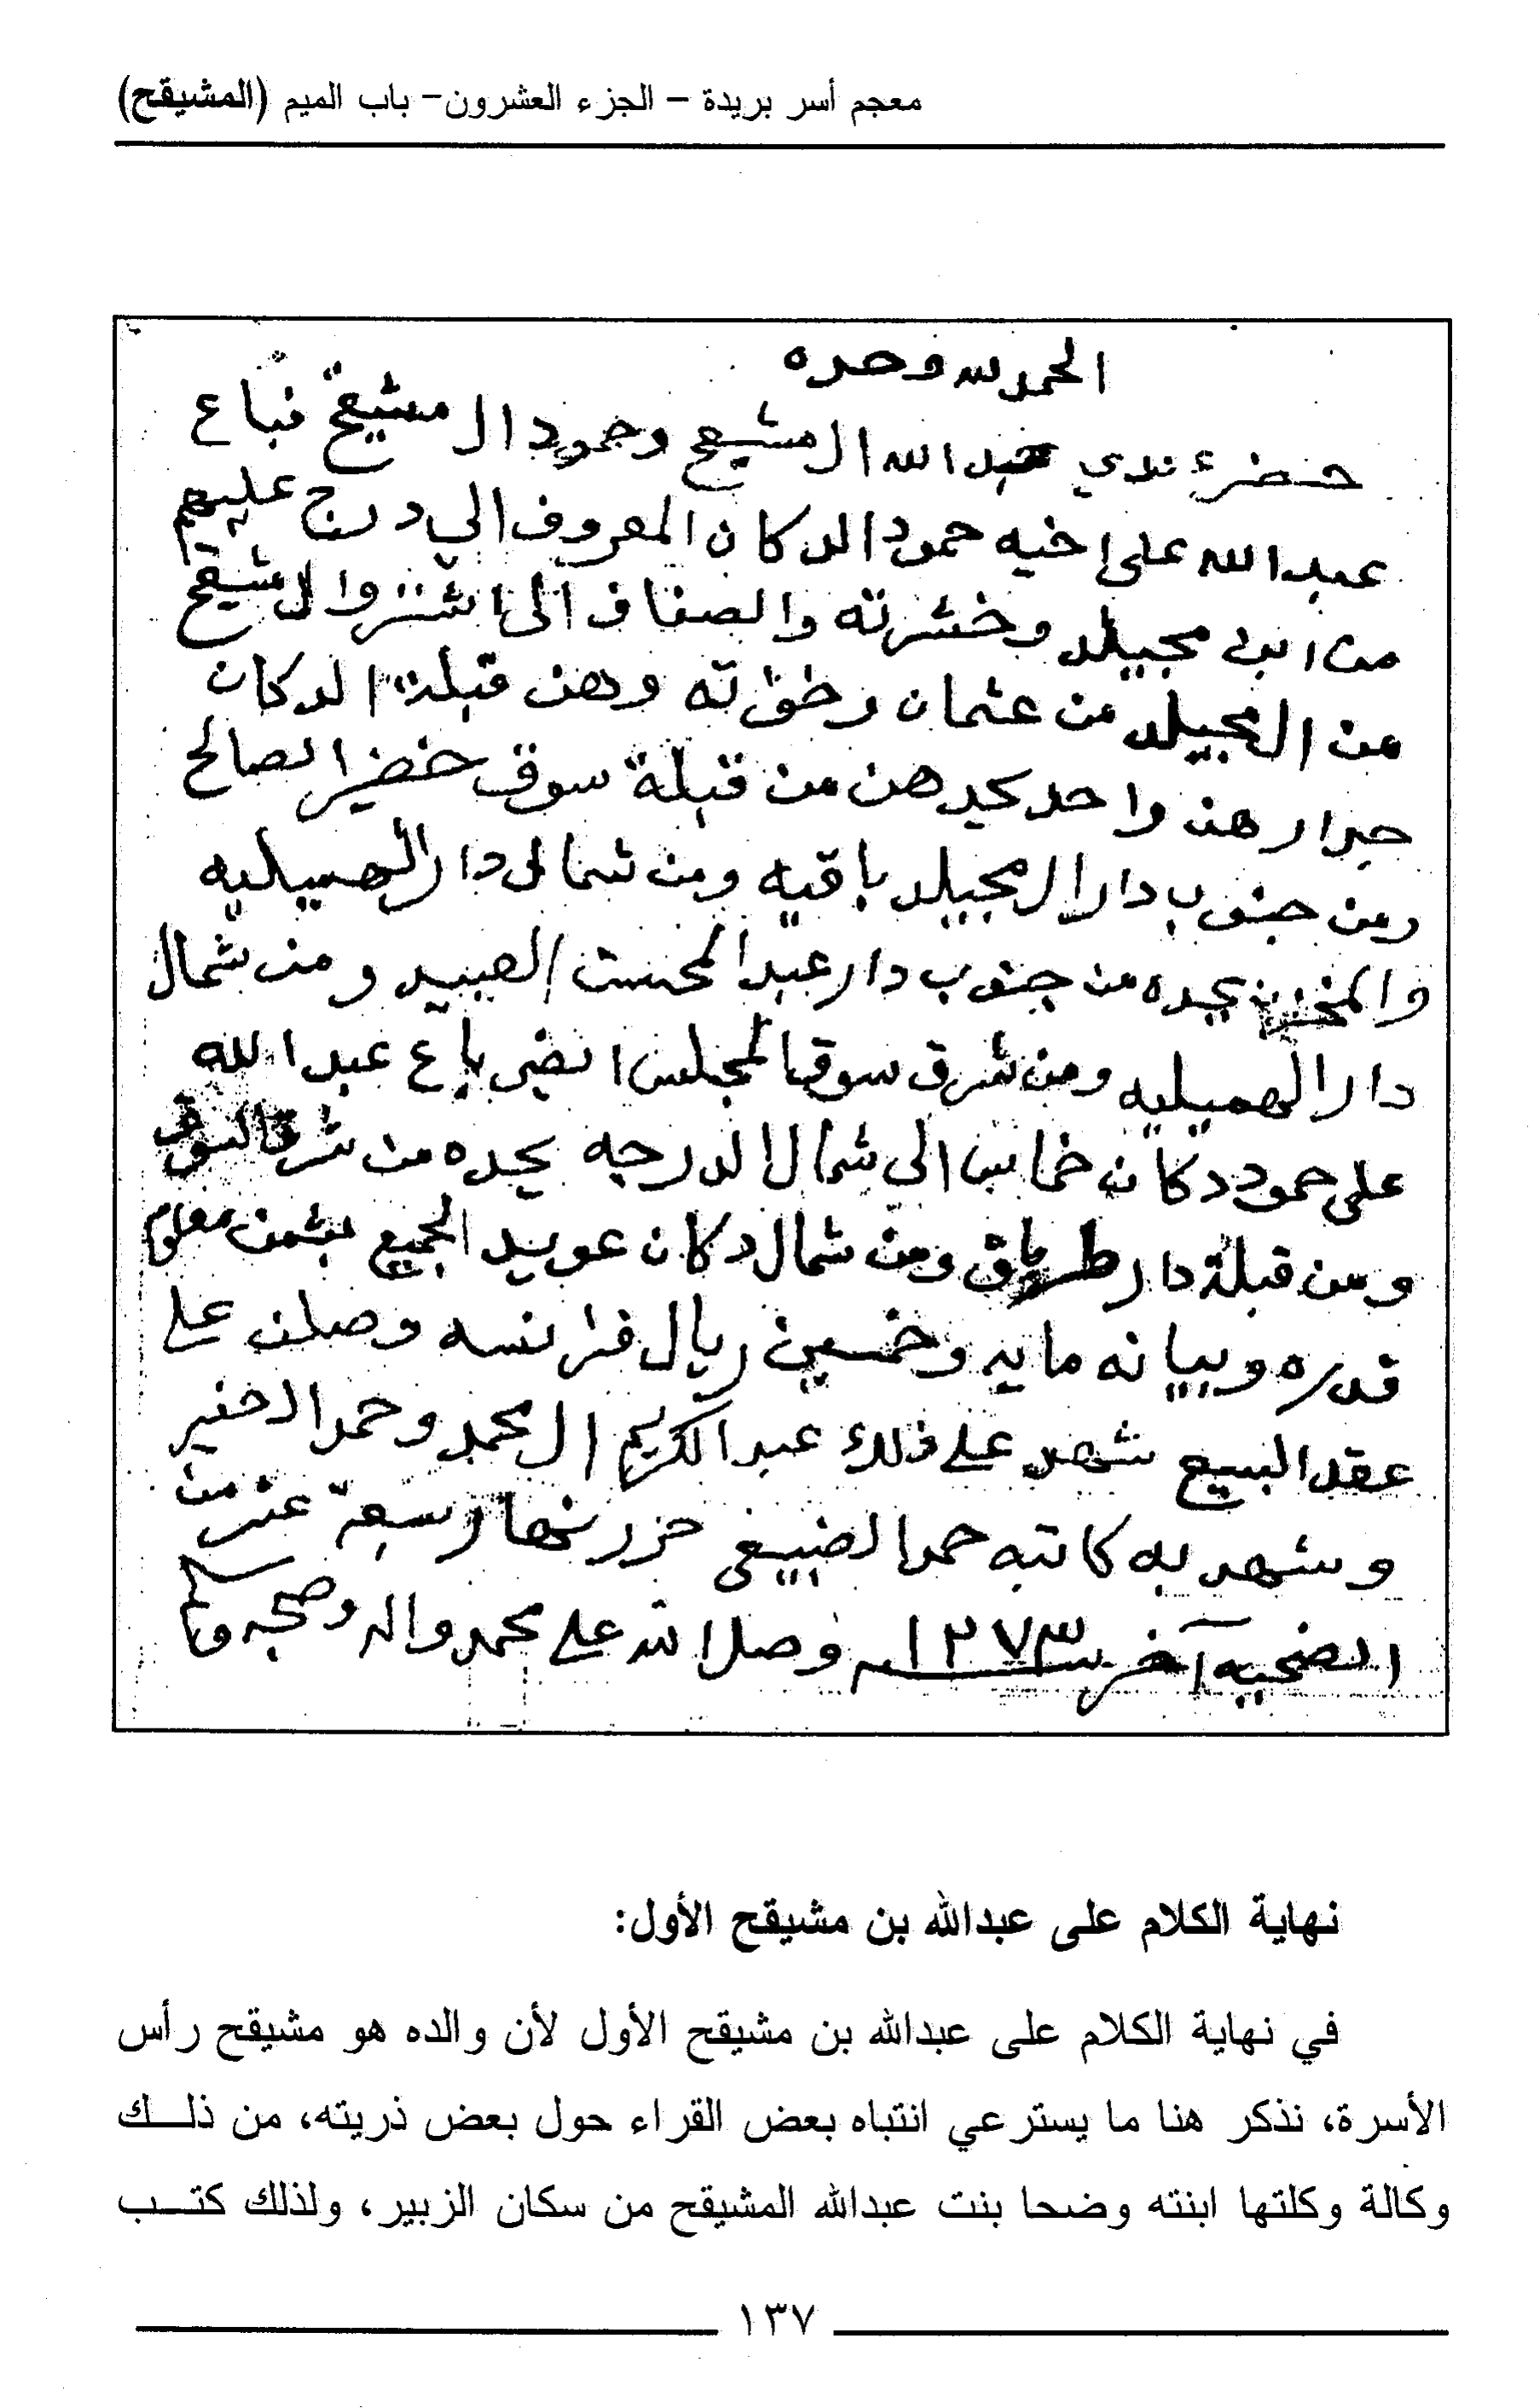 معجم أسر بريدة – الجزء العشرون – باب الميم (المشيقح)
الحمد لله وحده
حضر عندي عبدالله ال مشيقح وحمود ال مشيقح فباع
عبدالله على اخيه حمود الدكان المعروف الي درج عليهم
من ابن مجيلد وخشرته والصفاف الي اشتروا ال مشيقح
من ال مجيلد من عثمان وخوته وهن قبلة الدكان
جرارهن واحد يحدهن من قبلة سوق خضير الصالح
ومن جنوب دار ال مجيلد باقيه ومن شمالي دار الهميليه
والمخزن يحده من جنوب دار عبدالمحسن العبيد ومن شمال
دار الهميليه ومن شرق سوق المجلس ايضن باع عبدالله
على حمود دكان خماس الي شمال الدرجه يحده من شرق السوق
ومن قبلة دار ومن شمال دكان عويد الجميع بثمن معلوم
قدره وبيانه مايه وخمسين ريال فرانسه وصلن على
عقد البيع شهد على ذلك عبدالكريم ال محمد وحمد الخضير
وشهد به كاتبه حمد الضبيعي حزر نهار تسعة عشر من
الضحيه آخر سنة ١٢٧٣ وصلا الله على محمد واله وصحبه وسلم
نهاية الكلام على عبدالله بن مشيقح الأول:
في نهاية الكلام على عبدالله بن مشيقح الأول لأن والده هو مشيقح رأس
الأسرة، نذكر هنا ما يسترعي انتباه بعض القراء حول بعض ذريته، من ذلك
وكالة وكلتها ابنته وضحا بنت عبدالله المشيقح من سكان الزبير، ولذلك كتب
١٣٧